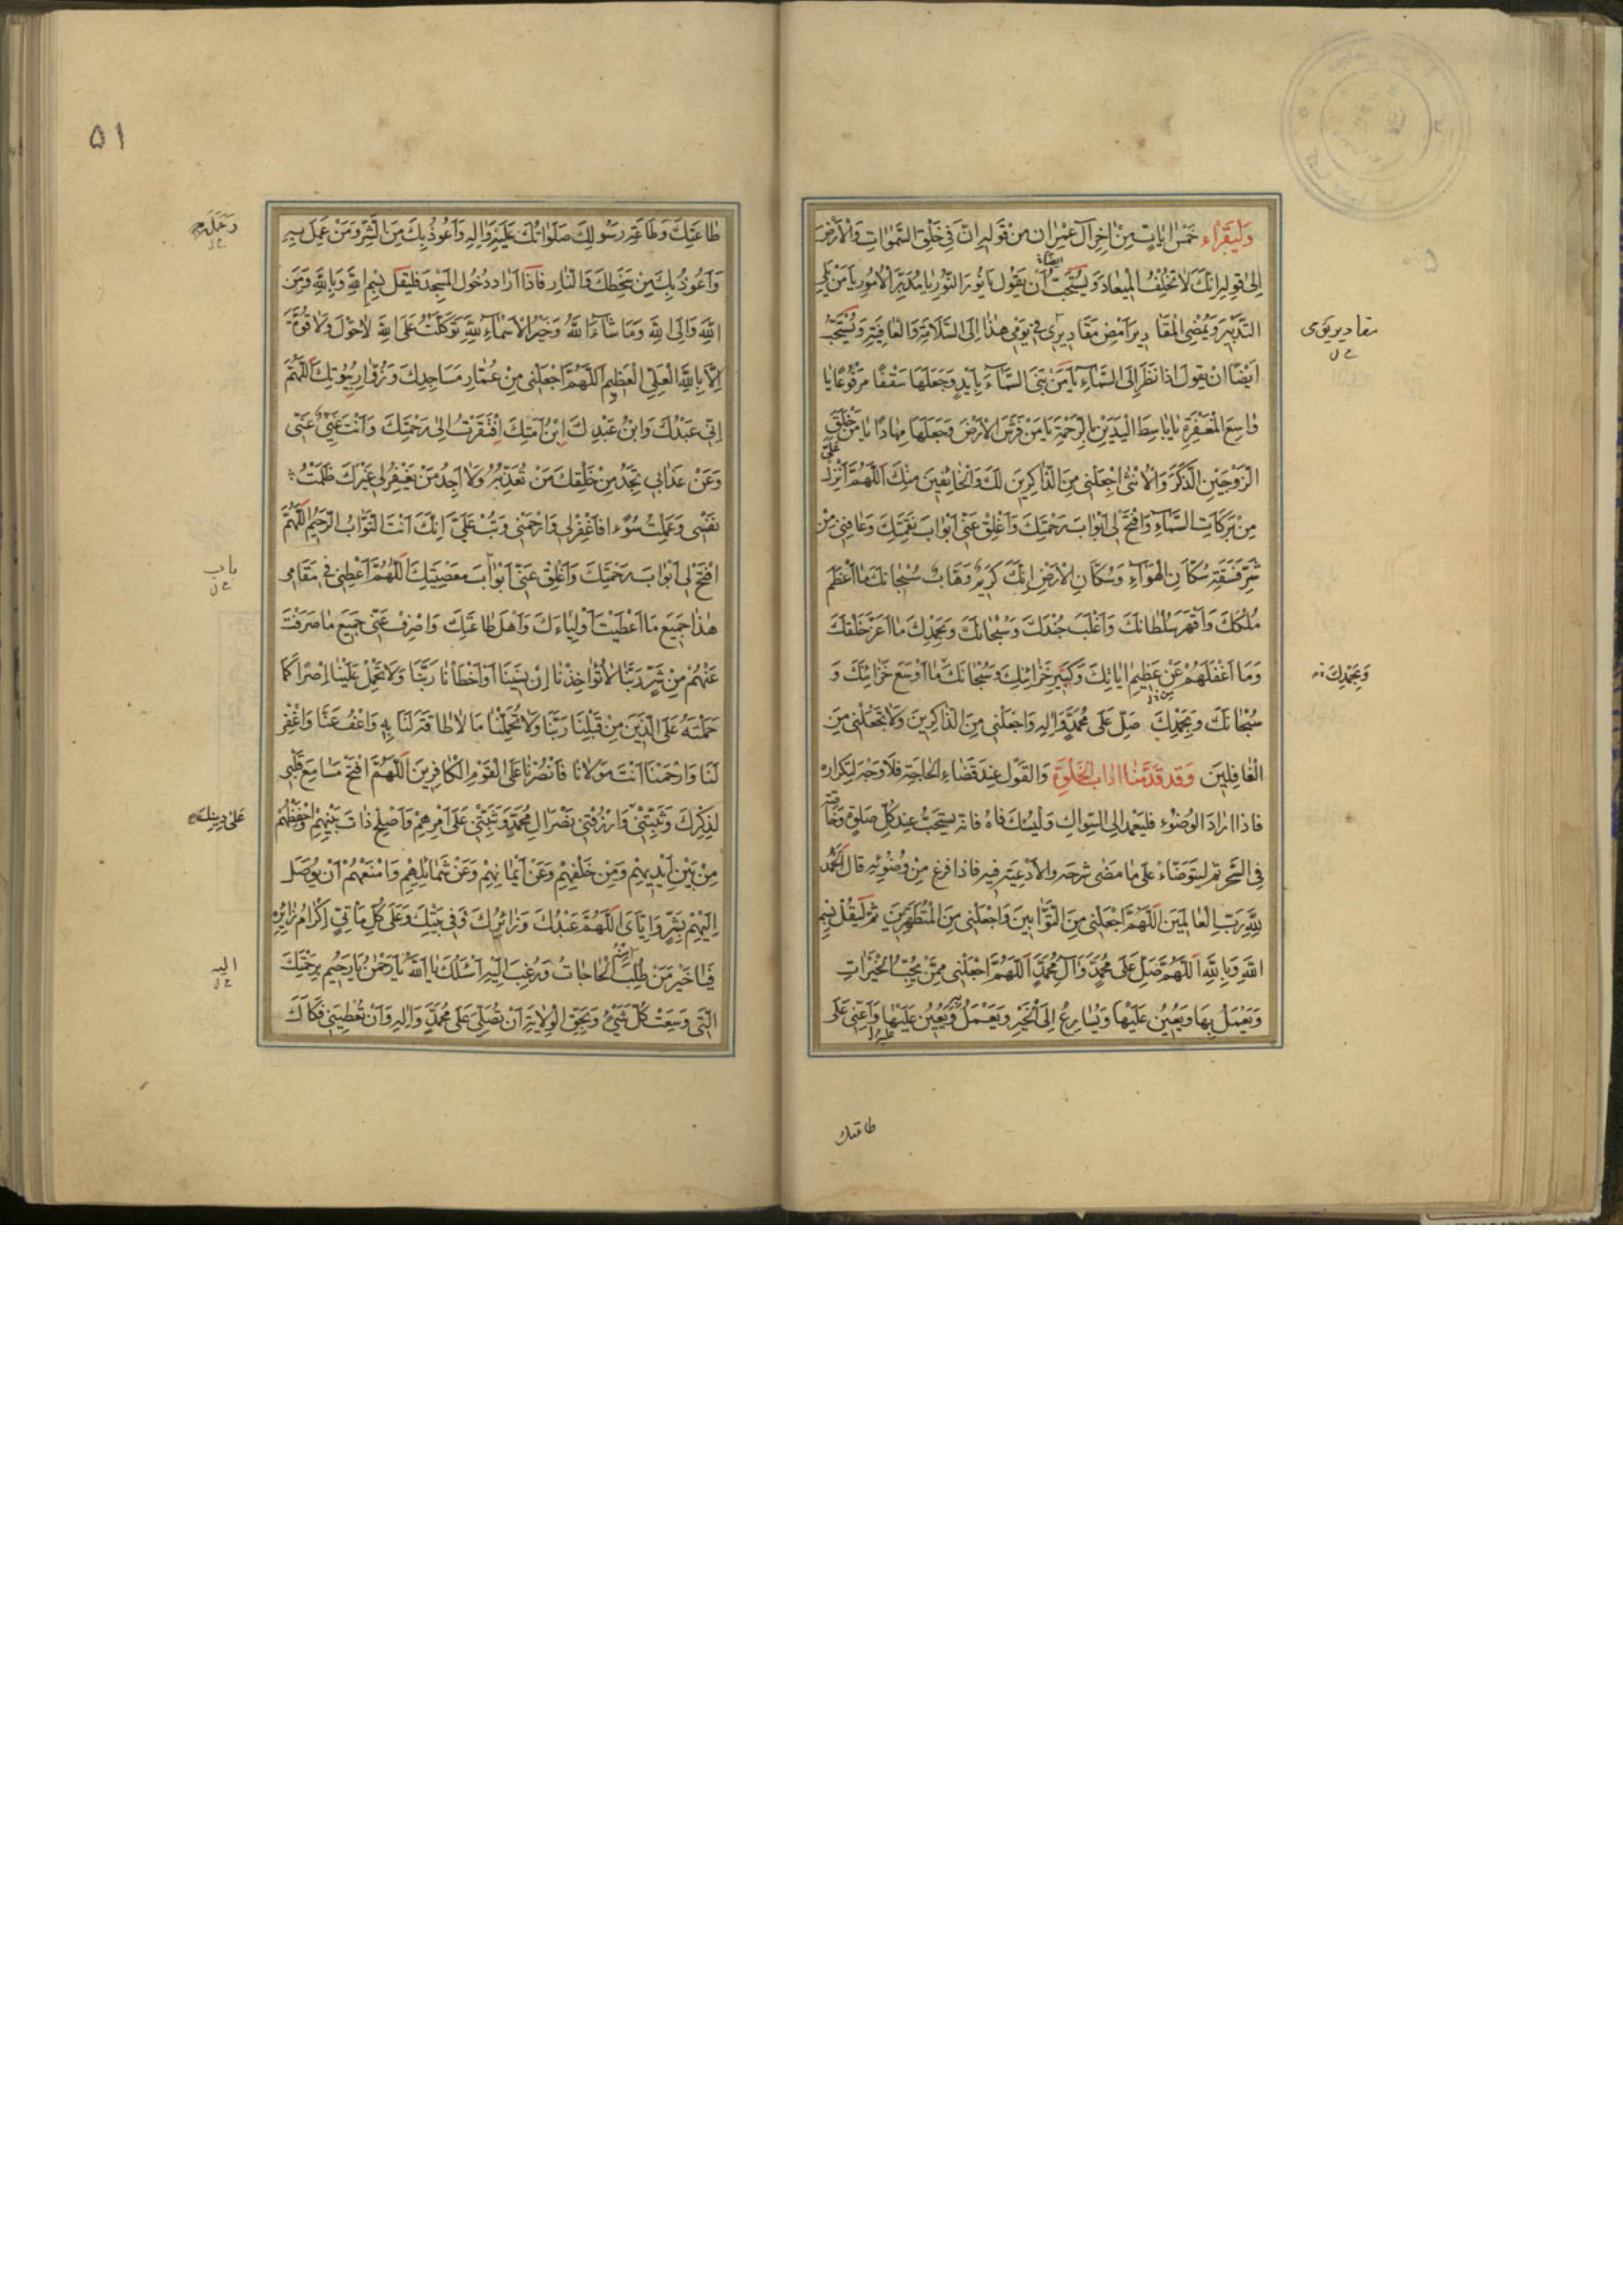 وَلْيَقْرَاء خَمْسَ اٰيَاتٍ مِنْ اٰخِرِ اٰلِ عِمْرٰان مِنْ قَوْلِهِ اِنَّ فِى خَلْقِ السَّمٰوٰاتِ وَالْاَرْضِ
اِلىٰ قَوْلِهِ اِنَّكَ لاٰ تُخْلِفُ الْمِيعٰادَ وَيُسْتَحَبُّ اَيضًا اَن يَقُولَ يٰا نُورَ النُّورِ يٰا مُدَبِّرَ الْاُمُورِ يٰا مَنْ يَلِى
التَّدْبِيرَ وَيُمْضِى الْمَقٰادِيرَ اَمْضِ مَقٰادِيرى فِى يَوْمِى هٰذٰا اِلَى السَّلاٰمَةِ وَالْعٰافِيَةِ وَيُسْتَحَبُّ
مقاديريومى
اَيْضًا انْ يَقُولَ اِذٰا نَظَرَ اِلَى السَّمٰاءِ يٰا مَنْ بَنَى السَّمٰاءَ بِاَيْدٍ وَجَعَلَهٰا سَقْفًا مَرْفُوعًا يٰا
وٰاسِعَ الْمَغْفِرَةِ يٰا بٰاسِطَ الْيَدَيْنِ بِالرَّحْمَةِ يٰا مَنْ فَرَشَ الْاَرْضَ وَجَعَلَهٰا مِهٰادًا يٰا مَنْ خَلَقَ
الزَّوْجَيْنِ الذَّكَرَ وَالْاُنْثىٰ اِجْعَلْنِى مِنَ الذّٰاكِرِينَ لَكَ وَالْخٰائِفِينَ مِنْكَ اَللّٰهُمَّ اَنْزِلْ عَلَىَّ
مِنْ بَرَكٰاتِ السَّمٰاءِ وَافْتَحْ لِى اَبْوٰابَ رَحْمَتِكَ وَاَغْلِقْ عَنّى اَبْوٰابَ نَقِمَتِكَ وَعٰافِنِى مِنْ
شَرِّ فَسَقَةِ سُكّٰانِ الْهَوٰاءِ وَسُكّٰانِ الْاَرْضِ اِنَّكَ كَرِيمٌ وَهّٰابٌ سُبْحٰانَكَ مٰا اَعْظَمَ
مُلْكَكَ وَاَقْهَرَ سُلْطٰانَكَ وَاَغْلَبَ جُنْدَكَ وَسُبْحٰانَكَ وَبِحَمْدِكَ مٰا اَعَزَّ خَلْقَكَ
وَمٰا اَغْفَلَهُمْ عَنْ عَظِيمِ اٰيٰاتِكَ وَكَبِيرِ خَزٰائِنِكَ وَسُبْحٰانَكَ مٰا اَوْسَعَ خَزٰائِنَكَ وَ
وَبِحَمْدِكَ
سُبْحٰانَكَ وَبِحَمْدِكَ صَلِّ عَلىٰ مُحَمَّدٍ وَاٰلِهِ وَاجْعَلْنِى مِنَ الذّٰاكِرِينَ وَلاٰ تَجْعَلْنِى مِنَ
الْغٰافِلِينَ وَقَد قَدَّمْنٰا اٰدٰابَ الْخَلْوَةِ وَالقَوْلَ عِنْدَ قَضٰاءِ الْحٰاجَةِ فَلاٰ وَجْهَ لِتَكْرٰارِهِ
فٰاذا ارٰادَ الوُضُوْءِ فَليَعْمد اِلَى السِّوٰاكِ وَلْيَسْتَكْ فٰاهُ فٰانَّهُ يستَحَبُّ عِندَ كُلِّ صَلٰوةٍ وَخٰاصَّةً
فِى السَّحَرِ ثم لْيَتوَضّٰاءْ عَلىٰ مٰا مَضىٰ شَرحه وَالاَدْعِيَة فِيهِ فَاذا فَرغ مِنْ وُضُوئِهِ قالَ اَلْحَمْدُ
لِلّٰهِ رَبِّ الْعٰالَمِينَ اَللّٰهُمَّ اجْعَلْنِى مِنَ التَّوّٰابِينَ وَاجْعَلْنِى مِنَ الْمُتَطَهِّرِينَ ثُمَّ لْيَقُلْ بِسْمِ
اللّٰهِ وَبِاللّٰهِ اَللّٰهُمَّ صَلِّ عَلىٰ مُحَمَّدٍ وَآلِ مُحَمَّدٍ اَللّٰهُمَّ اجْعَلْنِى مِمَّنْ يُحِبُّ الْخَيْرٰاتِ
وَيَعْمَلُ بِهٰا وَيُعِينُ عَلَيْهٰا وَيُسٰارِعُ اِلَى الْخَيْرِ وَيَعْمَلُ بِهِ وَيُعِينُ عَلَيْهٰا وَاَعِنِّى عَلىٰ
طاعتك
۵۱
طٰاعَتِكَ وَطٰاعَةِ رَسُولِكَ صَلَوٰاتُكَ عَلَيْهِ وَاٰلِهِ وَاَعُوذُ بِكَ مِنَ الشَّرِّ وَمَنْ عَمِلَ بِهِ
وَاَعُوذُ بِكَ مِنْ سَخَطِكَ وَالنّٰارِ فٰاذَا اَرٰادَ دُخُولَ الْمَسْجِدِ فَليَقُلْ بِسْمِ اللّٰهِ وَبِاللّٰهِ وَمِنَ
اللّٰهِ وَاِلَى اللّٰهِ وَمٰا شٰاءَ اللّٰهُ وَخَيْرُ الْاَسْمٰاءِ لِلّٰهِ تَوَكَّلْتُ عَلَى اللّٰهِ لاٰ حَوْلَ وَلاٰ قُوَّةَ
اِلّٰا بِاللّٰهِ الْعَلِىِّ الْعَظِيمِ اَللّٰهُمَّ اجْعَلْنِى مِنْ عُمّٰارِ مَسَاجِدِكَ وَزُوّٰارِ بُيُوتِكَ اَللّٰهُمَّ
اِنّى عَبْدُكَ وَابْنُ عَبْدِكَ ابْنُ اَمَتِكَ اِفْتَقَرْتُ اِلىٰ رَحْمَتِكَ وَاَنْتَ غَنِىٌّ عَنّى
وَعَنْ عَذٰابِى تَجِدُ مِنْ خَلْقِكَ مَنْ تُعَذِّبُهُ وَلاٰ اَجِدُ مَنْ يَغْفِرُ لِى غَيْرَكَ ظَلَمْتُ
نَفْسِى وَعَمِلْتُ سُوْءًا فَاغْفِرْ لِى وَارْحَمْنِى وَتُبْ عَلَىَّ اِنَّكَ اَنْتَ التَّوّٰابُ الرَّحِيمُ اَللّٰهُمَّ
افْتَحْ لِى اَبْوٰابَ رَحْمَتِكَ وَاَغْلِقْ عَنّى اَبْوٰابَ مَعْصِيَتِكَ اَللّٰهُمَّ اَعْطِنِى فِى مَقٰامِى
باب
هٰذٰا جَمِيعَ مٰا اَعْطَيْتَ اَوْلِيٰاءَكَ وَاَهْلَ طٰاعَتِكَ وَاصْرِفْ عَنّى جَمِيعَ مٰا صَرَفْتَ
عَنْهُمْ مِنْ شَرٍّ رَبَّنٰا لاٰ تُؤٰاخِذْنٰا اِنْ نَسِينٰا اَوْ اَخْطَأْنٰا رَبَّنٰا وَلاٰ تَحْمِلْ عَلَيْنٰا اِصْرًا كَمٰا
حَمَلْتَهُ عَلَى الَّذِينَ مِنْ قَبْلِنٰا رَبَّنٰا وَلاٰ تُحَمِّلْنٰا مٰا لاٰ طٰاقَةَ لَنٰا بِهِ وَاعْفُ عَنّٰا وَاغْفِرْ
لَنٰا وَارْحَمْنٰا اَنْتَ مَوْلاٰنٰا فَانْصُرْنٰا عَلَى الْقَوْمِ الْكٰافِرِينَ اَللّٰهُمَّ افْتَحْ مَسٰامِعَ قَلْبِى
لِذِكْرِكَ وَثَبِّتْنِى وَارْزُقْنِى نَصْرَ اٰلِ مُحَمَّدٍ وَثَبِّتْنِى عَلىٰ اَمْرِهِمْ وَاَصْلِحْ ذٰاتَ بَيْنِهِمْ وَاحْفَظْهُمْ
عَلىٰ دِينِكَ
مِنْ بَيْنِ اَيْدِيهِمْ وَمِنْ خَلْفِهِمْ وَعَنْ اَيْمٰانِهِمْ وَعَنْ شَمٰائِلِهِمْ وَامْنَعْهُمْ اَنْ يُوصَلَ
اِلَيْهِمْ بِشَرٍّ وَاِيّٰاىَ اَللّٰهُمَّ عَبْدُكَ وَزٰائِرُكَ وَفِى بَيْتِكَ وَعَلىٰ كُلِّ مَأْتِىٍّ اِكْرٰامُ زٰائِرِهِ
فَيٰا خَيْرَ مَنْ طُلِبَ الْحٰاجٰاتُ وَرُغِبَ اِلَيْهِ اَسْئَلُكَ يٰا اَللّٰهُ يٰا رَحْمٰنُ يٰا رَحِيمُ بِرَحْمَتِكَ
اليه
الَّتِى وَسِعَتْ كُلَّ شَيْءٍ وَبِحَقِّ الْوِلاٰيَةِ اَنْ تُصَلِّىَ عَلىٰ مُحَمَّدٍ وَاٰلِهِ وَاَنْ تُعْطِيَنِى فَكٰاكَ